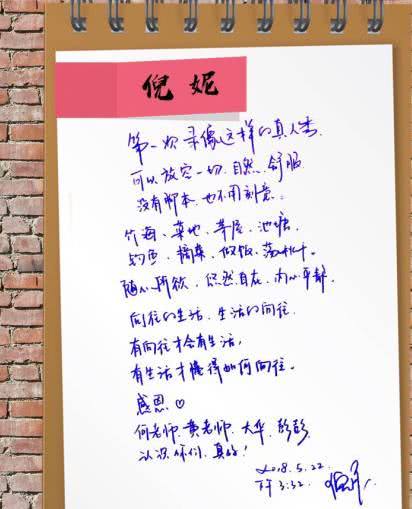 倪妮
第一次录像这样的真人秀
可以放空一切.自然.舒服
没有脚本.也不用刻意。
竹海、菜地、茅屋、池塘.
钓鱼、摘菜、做饭、荡秋千。
随心所欲、悠然自在、内心平静
向往的生活.生活的向往
有向往才会有生活,
有生活才懂得如何向往。
感恩♡
何老师.黄老师.大华.彭彭
认识你们.真好!
2018.5.22
下午3:32